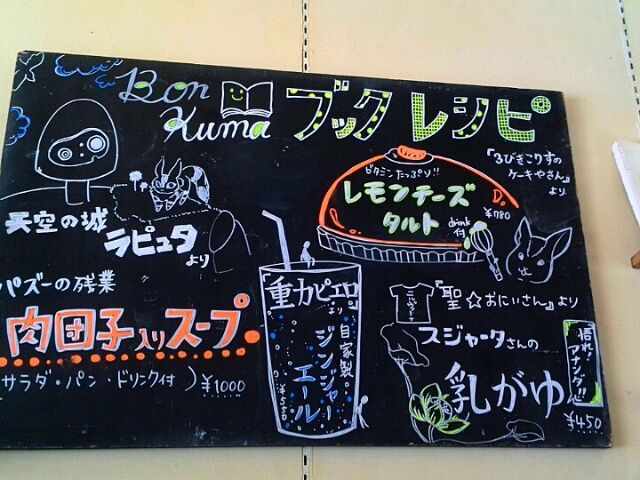 Bon
Kuma
ブックレシピ
天空の城
ラピュタ
より
パズーの残業
肉団子入りスープ
(サラダ・パン・ドリンク付) ¥1000
ビタミンたっぷり!!
レモンチーズ
タルト
drink
付
¥780
『るびきこりすの
ケーキやさん』
より
重力ピエロ
より
自家製
ジンジャー
エール
¥550
『聖☆おにいさん』より
スジャータさんの
乳がゆ
悟れ!
アナンダ!!
¥450